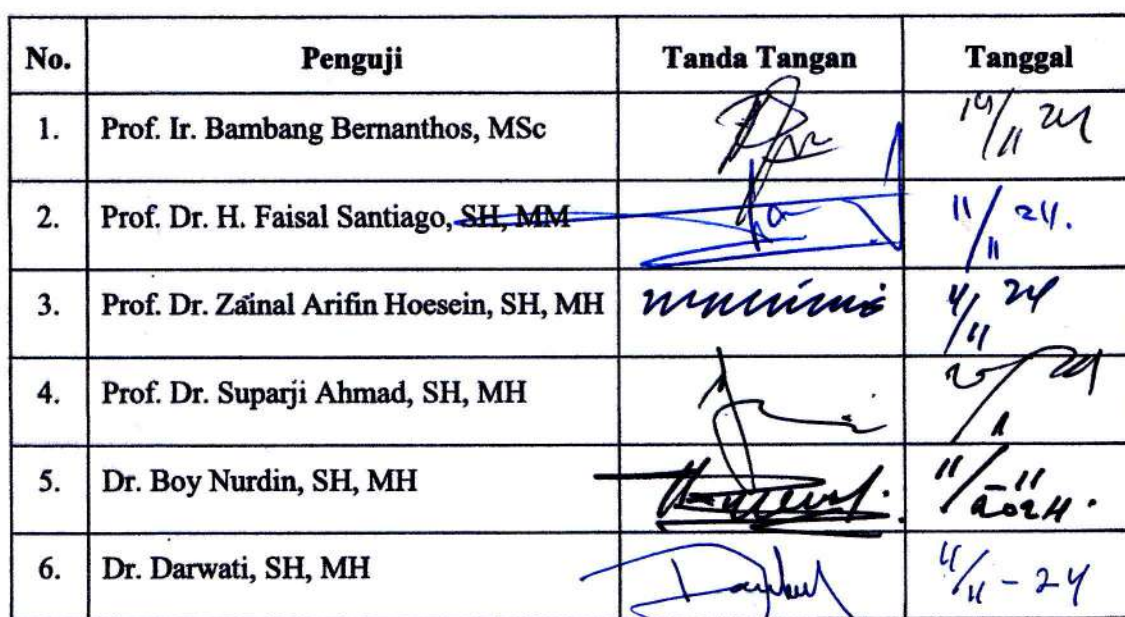 No. Penguji Tanda Tangan Tanggal
1. Prof. Ir. Bambang Bernanthos, MSc
2. Prof. Dr. H. Faisal Santiago, SH, MM 11/11 24.
3. Prof. Dr. Zainal Arifin Hoesein, SH, MH
4. Prof. Dr. Suparji Ahmad, SH, MH
5. Dr. Boy Nurdin, SH, MH 11/11-2024.
6. Dr. Darwati, SH, MH